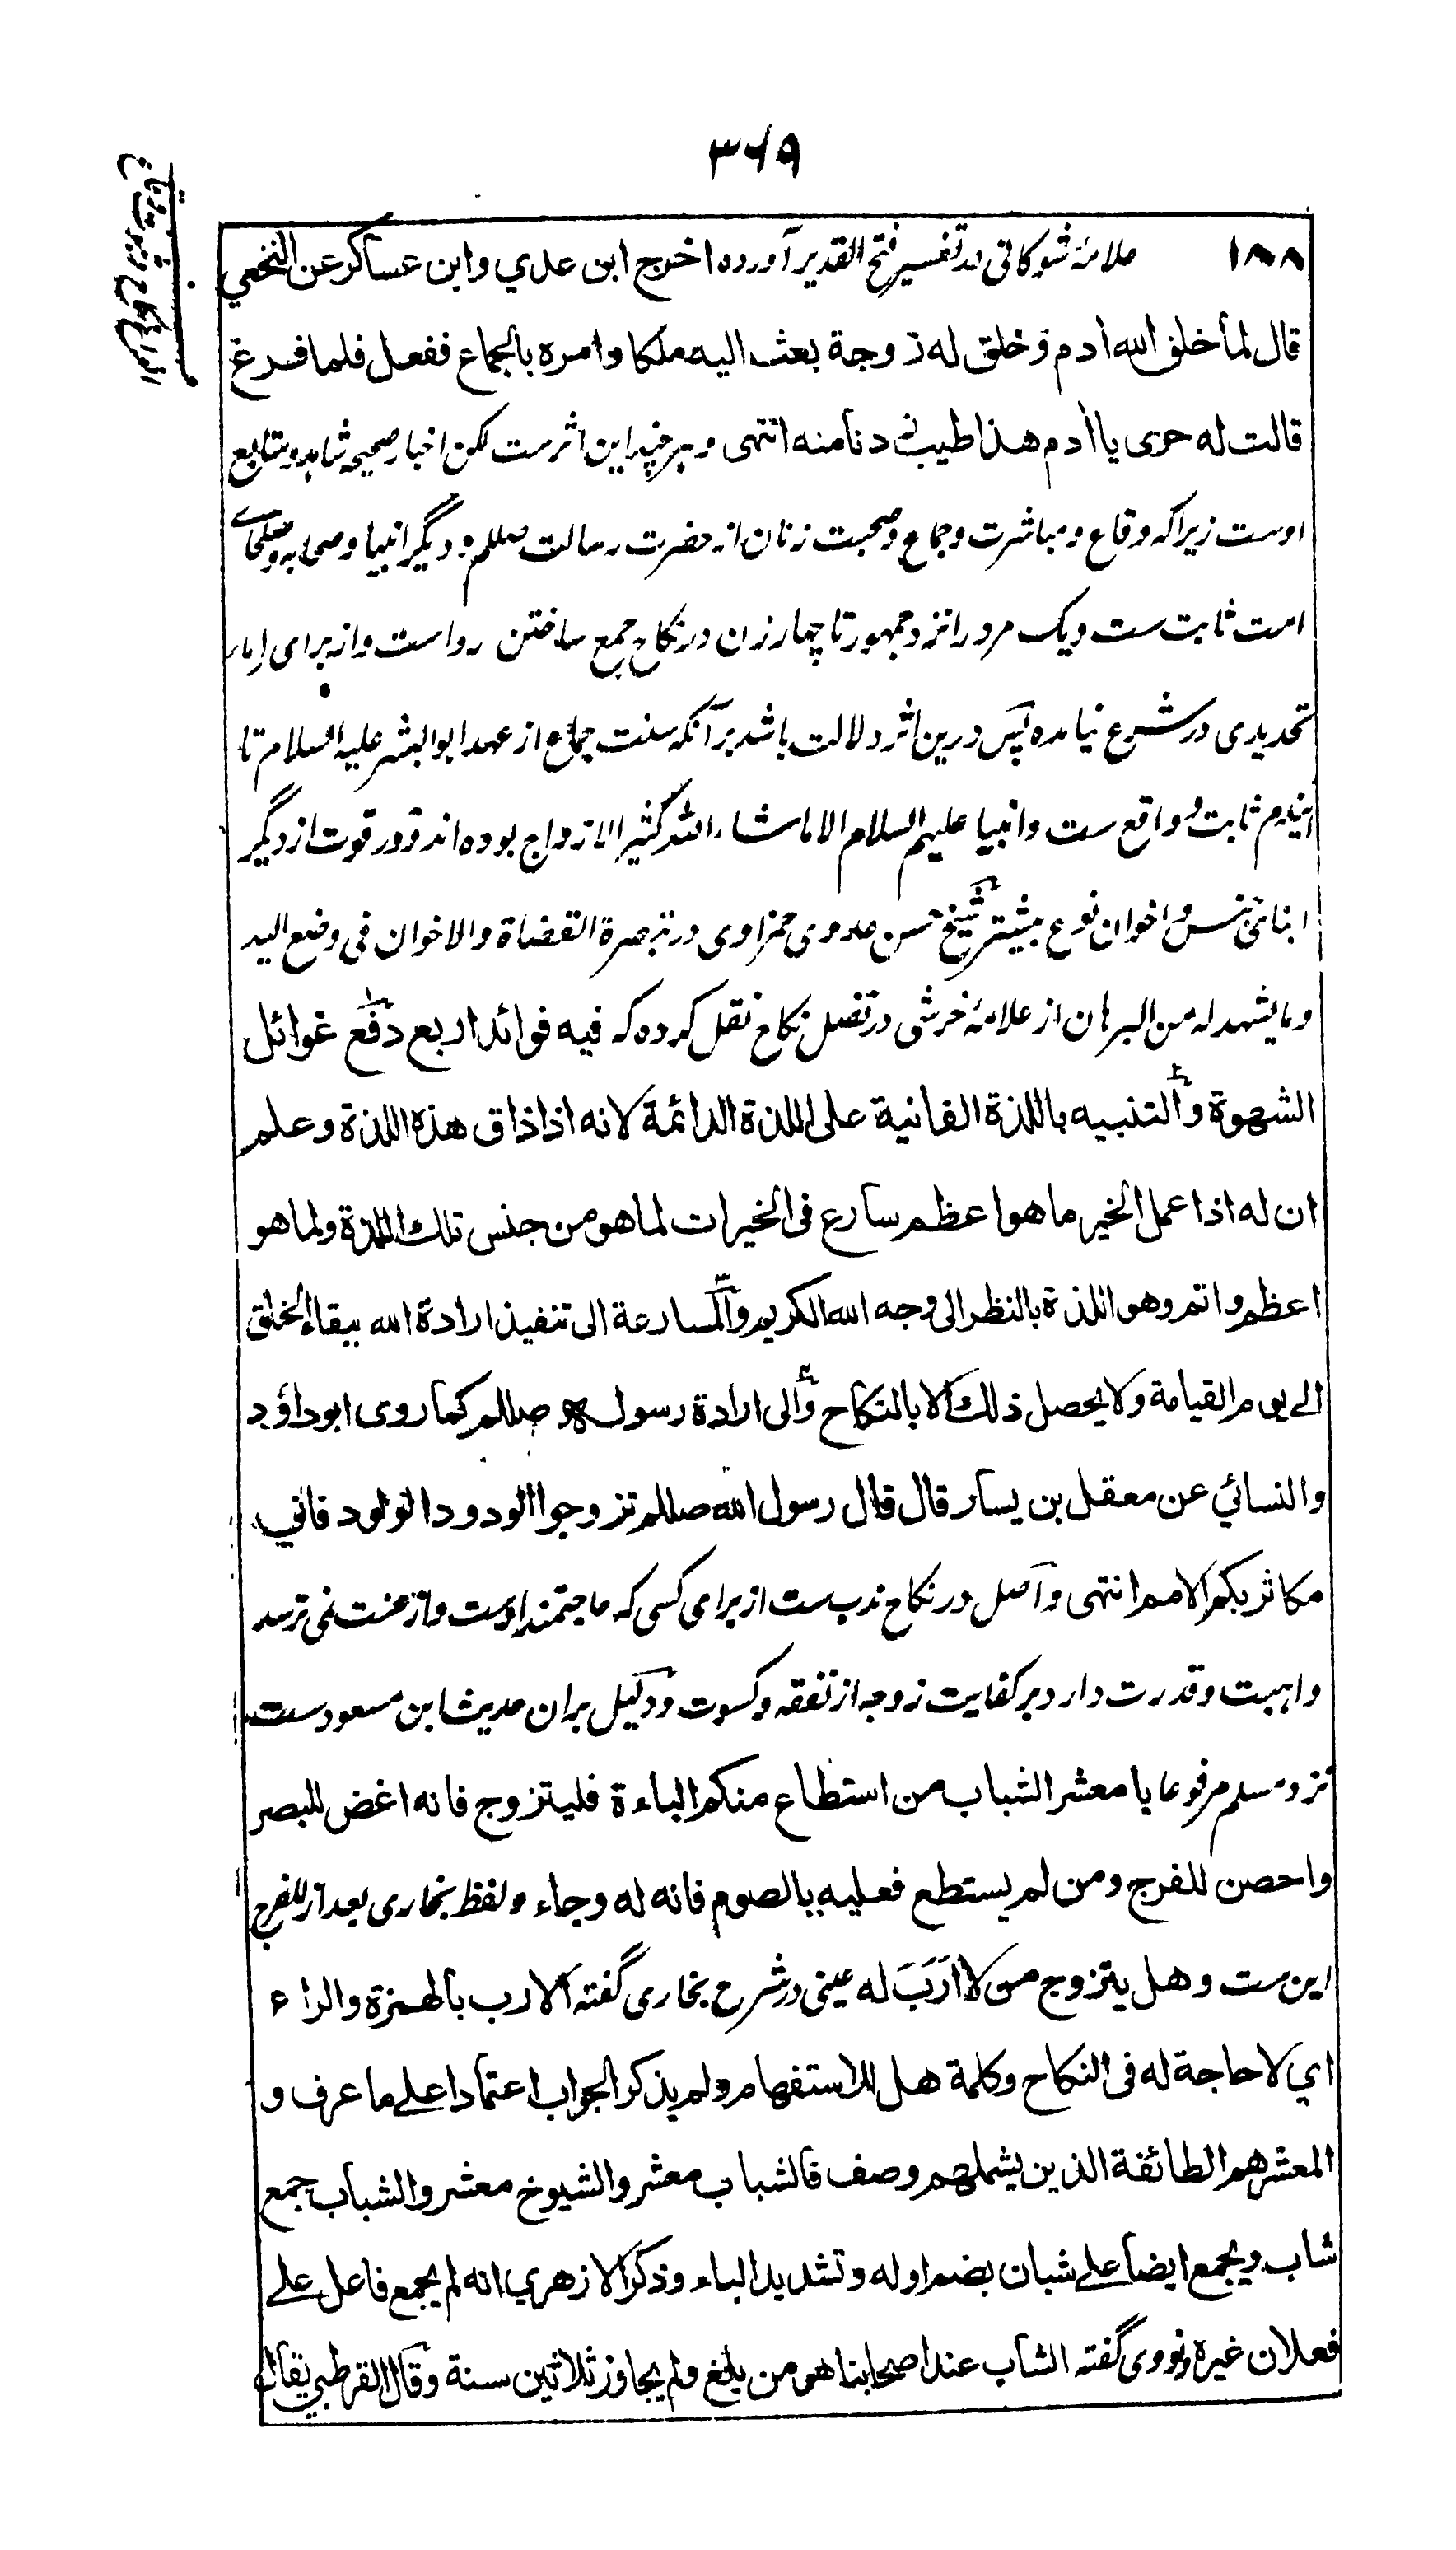 ۳۶۹
۱۸۸ علامۀ شوکانی در تفسیر فتح القدیر آورده اخرج ابن عدي وابن عساكر عن النخعي
قال لما خلق الله ادم وخلق له زوجة بعث اليه ملكا وامره بالجماع ففعل فلما فرغ
قالت له حوى يا ادم هذا طيب زدنا منه انتهى و هر چند این اثرست لکن اخبار صحیحه شاهد و متابع
اوست زیرا که وقاع و مباشرت و جماع و صحبت زنان از حضرت رسالت صللم و دیگر انبیا و صحابه و صلحای
امت ثابت ست و یک مرد را نزد جمهور تا چهار زن در نکاح جمع ساختن رواست و از برای اماء
تحدیدی در شرع نیامده پس درین اثر دلالت باشد بر آنکه سنت جماع از عهد ابو البشر علیه السلام تا
ایندم ثابت و واقع ست و انبیا علیهم السلام الا ماشاء الله کثیر الازواج بوده اند و در قوت از دیگر
ابنای جنس و اخوان نوع بیشتر شیخ حسن عدوی حمزاوی در تبصرة القضاة والاخوان فی وضع الید
وما یشهد له من البرهان از علامۀ خرشی در تفصل نکاح نقل کرده که فيه فوائد اربع دفع غوائل
الشهوة والتنبيه باللذة الفانية على اللذة الدائمة لانه اذا ذاق هذه اللذة وعلم
ان له اذا عمل الخير ما هو اعظم سارع في الخيرات لما هو من جنس تلك اللذة ولما هو
اعظم واتم وهو اللذة بالنظر الى وجه الله الكريم والمسارعة الى تنفيذ ارادة الله ببقاء الخلق
الى يوم القيامة ولا يحصل ذلك الا بالنكاح والى ارادة رسوله صللم كما روى ابوداؤد
والنسائي عن معقل بن يسار قال قال رسول الله صللم تزوجوا الودود الولود فاني
مكاثر بكم الامم انتهى و اصل در نکاح ندب ست از برای کسی که حاجتمند اوست و از عنت نمی ترسد
و اهبت و قدرت دارد بر کفایت زوجه از نفقه و کسوت و دلیل بران حدیث ابن مسعودست
نزد مسلم مرفوعا يا معشر الشباب من استطاع منكم الباءة فليتزوج فانه اغض للبصر
واحصن للفرج ومن لم يستطع فعليه بالصوم فانه له وجاء و لفظ بخاری بعد از للفرج
این ست وهل يتزوج من لا اَرَبَ له عینی در شرح بخاری گفته الارب بالهمزة والراء
اي لا حاجة له في النكاح وكلمة هل للاستفهام ولم يذكر الجواب اعتمادا على ما عرف و
المعشر هم الطائفة الذين يشملهم وصف فالشباب معشر والشيوخ معشر والشباب جمع
شاب ويجمع ايضا على شبان بضم اوله وتشديد الباء وذكر الازهري انه لم يجمع فاعل على
فعلان غيره و نووی گفته الشاب عند اصحابنا هو من بلغ ولم يجاوز ثلاثين سنة وقال القرطبي يقال